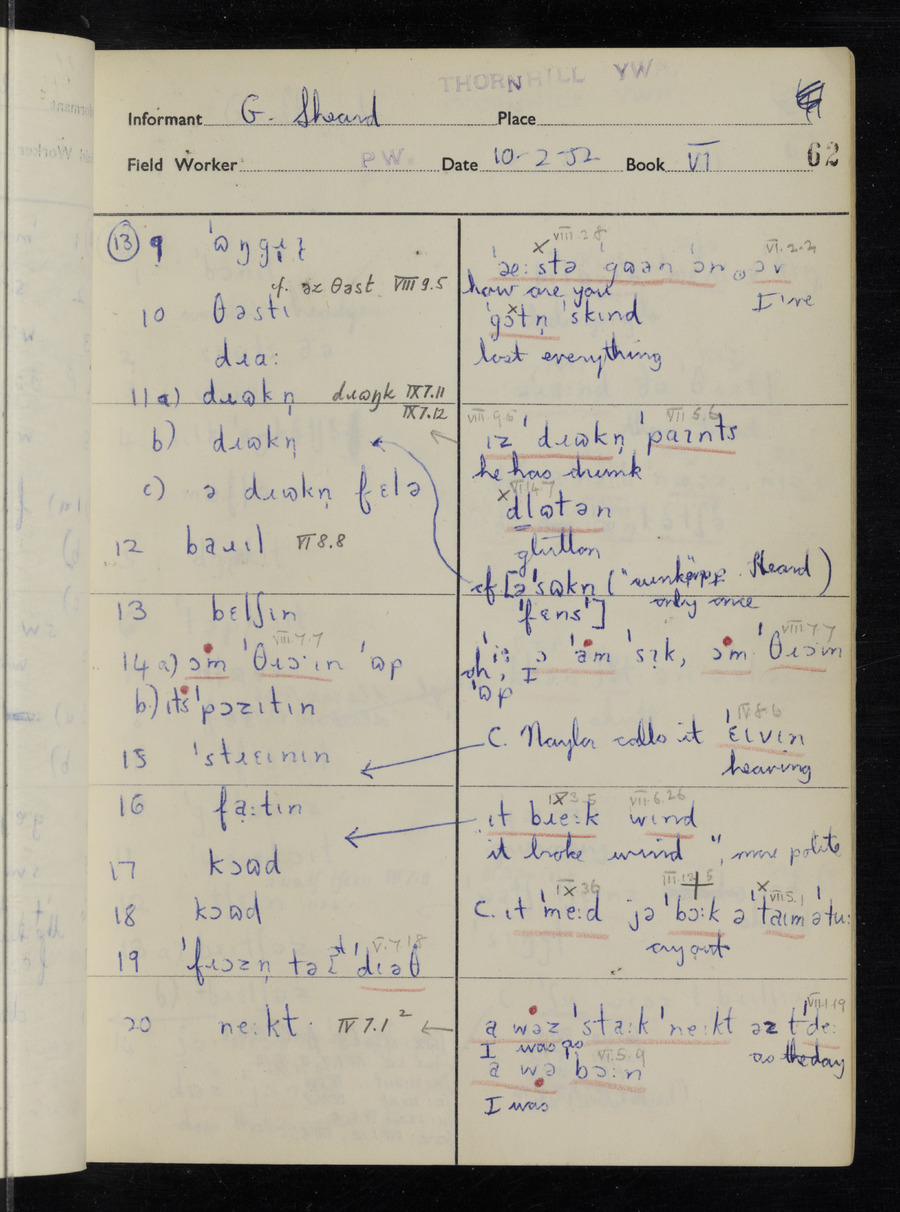 THORNHILL YW
Informant G. Sheard Place
Field Worker P.W. Date 10-2-52 Book VI 62
13 9 ˈɷŋgɹɪ
cf. əz θəst VIII 9.5
10 θəstɪ
dɹaː
11 a) dɹɷkn̩ dɹɷŋk IX 7.11
IX 7.12
b) dɹɷkn̩
c) ə dɹɷkn̩ fɛlə
12 VI 8.8
13 bɛlʃɪn
VIII.7.7
14 a) ɔm ˈθɹɔɪn ˈɷp
b) ɪts ˈpɔzɪtɪn
15 ˈstɹɛɪnɪn
16 fa̠ːtɪn
17 kɔɷd
18 kɔɷd
19 ˈfɹɔzn̩ tə ˈdɪəθ
20 neːkt IV 7.1²
VIII.2.8 VI.2.2
ˈæːstə ˈgɷən ˈɔn ɔv
how are you I've
ˈgɔtn̩ ˈskɪnd
lost everything
VIII.9.5 VII.5.6
ɪz ˈdɹɷkn̩ ˈpaɪnts
he has drunk
dlɷtən
glutton
cf [ə ˈsɷkn̩ ("sunken" app. Heard)
only once
ˈfɛns']
VIII.7.7
ə ˈam ˈsɪk, ɔm ˈθɹɔɪn
oh, I
ˈɷp
IV 8.6
C. Naylor calls it ˈɛɪvɪn
heaving
IX 3.5 VII.6.26
ɪt bɹɛːk wɪnd
it broke wind ", more polite
IX 3.6 III.12.5 VII 5.1
C. ɪt ˈmeːd jə ˈbɔːk ə ˈtaɪm ətuː
cry out
VII.1.19
a wəz ˈstaːk ˈneːkt əz tˈdeː
I was as as the day
VI.5.9
a wə bɔːn
I was